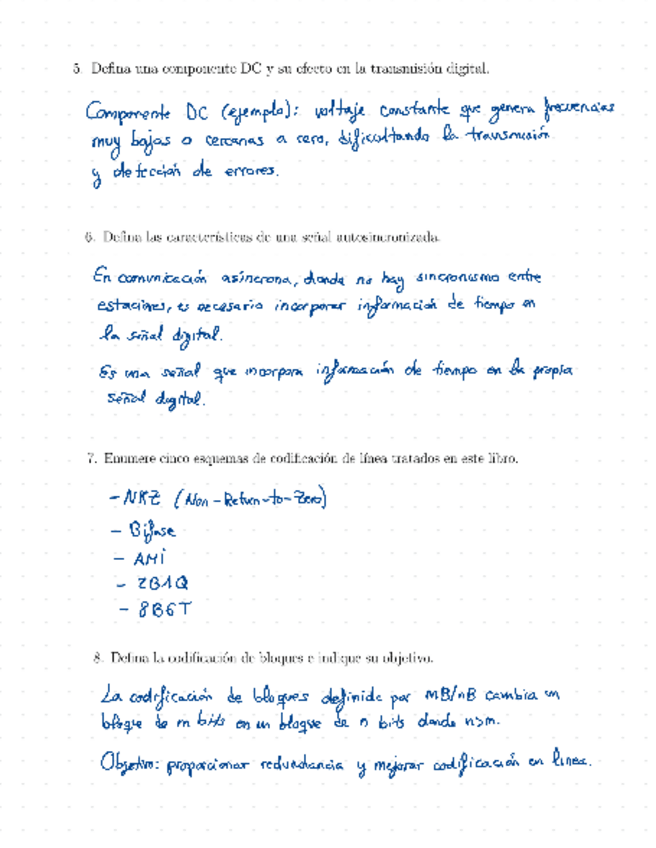 5. Defina una componente DC y su efecto en la transmisión digital.
Componente DC (ejemplo): voltaje constante que genera frecuencias
muy bajas o cercanas a cero, dificultando la transmisión
y detección de errores.
6. Defina las características de una señal autosincronizada.
En comunicación asíncrona, donde no hay sincronismo entre
estaciones, es necesario incorporar información de tiempo en
la señal digital.
Es una señal que incorpora información de tiempo en la propia
señal digital.
7. Enumere cinco esquemas de codificación de línea tratados en este libro.
- NRZ (Non-Return-to-Zero)
- Bifase
- AMI
- 2B1Q
- 8B6T
8. Defina la codificación de bloques e indique su objetivo.
La codificación de bloques definida por mB/nB cambia un
bloque de m bits en un bloque de n bits donde n>m.
Objetivo: proporcionar redundancia y mejorar codificación en línea.